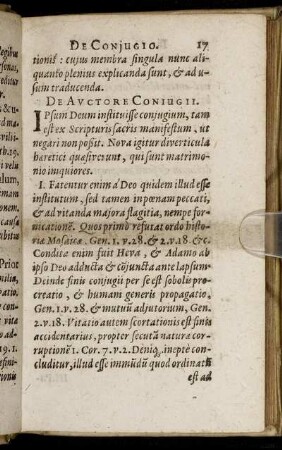 DE CONJUGIO. 17
tionis: cujus membra singula nunc ali-
quanto plenius explicanda sunt, & ad u-
sum traducenda.
DE AVCTORE CONIUGII.
IPsum Deum instituisse conjugium, tam
est ex Scripturis sacris manifestum, ut
negari non possit. Nova igitur diverticula
hæretici quæsiverunt, qui sunt matrimo-
nio iniquiores.
I. Fatentur enim à Deo quidem illud esse
institutum, sed tamen in pœnam peccati,
& ad vitanda majora flagitia, nempe for-
nicationē. Quos primò refutat ordo histo-
riæ Mosaicæ. Gen. 1. v. 28. & 2. v. 18. &c.
Condita enim fuit Heva, & Adamo ab
ipso Deo adducta & cōjuncta ante lapsum.
Deinde finis conjugii per se est sobolis pro-
creatio, & humani generis propagatio.
Gen. 1. v. 28. & mutuū adjutorium, Gen.
2. v. 18. Vitatio autem scortationis est finis
accidentarius, propter secutā naturæ cor-
ruptionē 1. Cor. 7. v. 2. Deniq; ineptè con-
cluditur, illud esse immūdū quod ordinatū
est ad